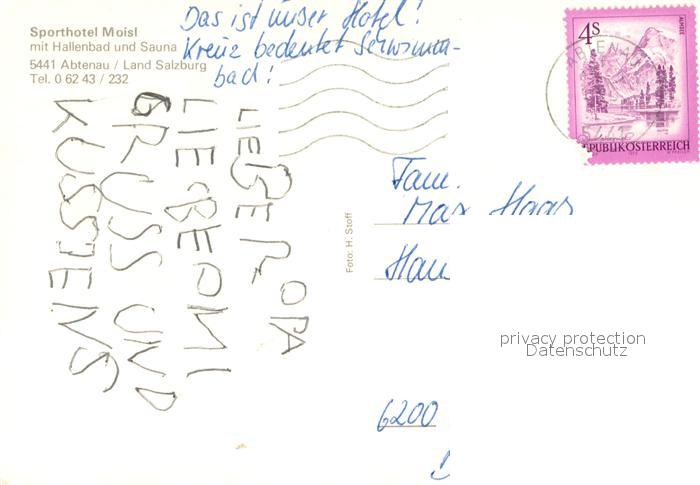 Sporthotel Moisl
mit Hallenbad und Sauna
5441 Abtenau / Land Salzburg
Tel. 0 62 43 / 232
Das ist unser Hotel!
Kreuz bedeutet Schwimm-
bad!
LIEBER OPA
LIEBE OMI
GRUSS UND
KUSS JENS
Foto: H. Stoff
4S
ALMSEE
REPUBLIK ÖSTERREICH
ABTENAU
5441
Fam.
Max Haas
Hau
6200
privacy protection
Datenschutz